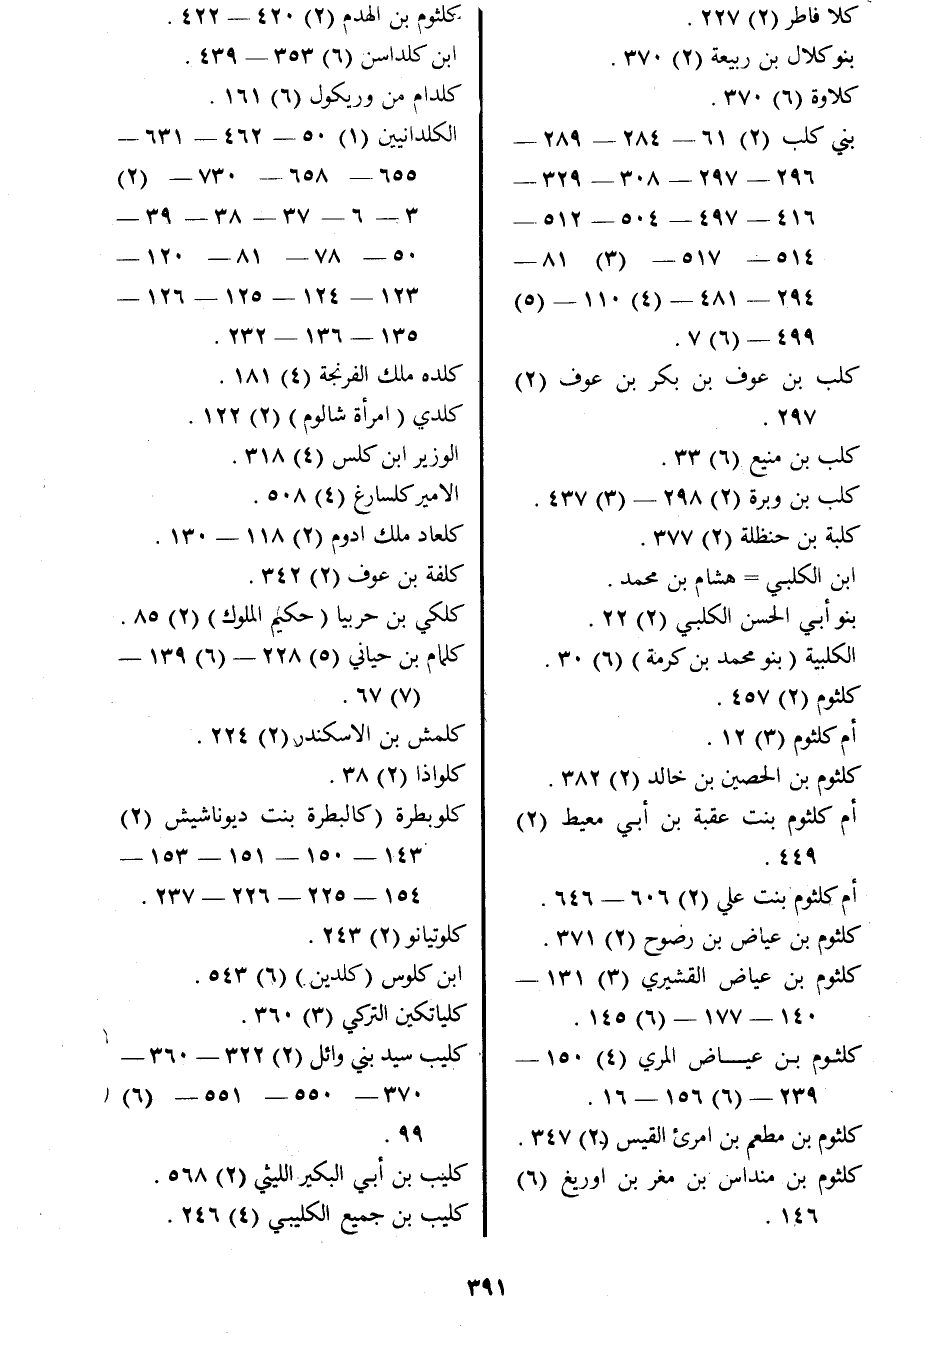 كلا فاطر (٢) ٢٢٧ .
بنو كلال بن ربيعة (٢) ٣٧٠ .
كلاوة (٦) ٣٧٠ .
بني كلب (٢) ٦١ — ٢٨٤ — ٢٨٩ —
٢٩٦ — ٢٩٧ — ٣٠٨ — ٣٢٩ —
٤١٦ — ٤٩٧ — ٥٠٤ — ٥١٢ —
٥١٤ — ٥١٧ — (٣) ٨١ —
٢٩٤ — ٤٨١ — (٤) ١١٠ — (٥)
٤٩٩ — (٦) ٧ .
كلب بن عوف بن بكر بن عوف (٢)
٢٩٧ .
كلب بن منيع (٦) ٣٣ .
كلب بن وبرة (٢) ٢٩٨ — (٣) ٤٣٧ .
كلبة بن حنظلة (٢) ٣٧٧ .
ابن الكلبي = هشام بن محمد .
بنو أبي الحسن الكلبي (٢) ٢٢ .
الكلبية ( بنو محمد بن كرمة ) (٦) ٣٠ .
كلثوم (٢) ٤٥٧ .
أم كلثوم (٣) ١٢ .
كلثوم بن الحصين بن خالد (٢) ٣٨٢ .
أم كلثوم بنت عقبة بن أبي معيط (٢)
٤٤٩ .
أم كلثوم بنت علي (٢) ٦٠٦ — ٦٤٦ .
كلثوم بن عياض بن رضوح (٢) ٣٧١ .
كلثوم بن عياض القشيري (٣) ١٣١ —
١٤٠ — ١٧٧ — (٦) ١٤٥ .
كلثوم بن عيـاض المري (٤) ١٥٠ —
٢٣٩ — (٦) ١٥٦ — ١٦ .
كلثوم بن مطعم بن امرئ القيس (٢) ٣٤٧ .
كلثوم بن منداس بن مغر بن اوريغ (٦)
١٤٦ .
كلثوم بن الهدم (٢) ٤٢٠ — ٤٢٢ .
ابن كلداسن (٦) ٣٥٣ — ٤٣٩ .
كلدام من وريكول (٦) ١٦١ .
الكلدانيين (١) ٥٠ — ٤٦٢ — ٦٣١ —
٦٥٥ — ٦٥٨ — ٧٣٠ — (٢)
٣ — ٦ — ٣٧ — ٣٨ — ٣٩ —
٥٠ — ٧٨ — ٨١ — ١٢٠ —
١٢٣ — ١٢٤ — ١٢٥ — ١٢٦ —
١٣٥ — ١٣٦ — ٢٣٢ .
كلده ملك الفرنجة (٤) ١٨١ .
كلدي ( امرأة شالوم ) (٢) ١٢٢ .
الوزير ابن كلس (٤) ٣١٨ .
الامير كلسارغ (٤) ٥٠٨ .
كلعاد ملك ادوم (٢) ١١٨ — ١٣٠ .
كلفة بن عوف (٢) ٣٤٢ .
كلكي بن حربيا ( حكيم الملوك ) (٢) ٨٥ .
كلمام بن حياني (٥) ٢٢٨ — (٦) ١٣٩ —
(٧) ٦٧ .
كلمش بن الاسكندر (٢) ٢٢٤ .
كلواذا (٢) ٣٨ .
كلوبطرة (كالبطرة بنت ديوناشيش (٢)
١٤٣ — ١٥٠ — ١٥١ — ١٥٣ —
١٥٤ — ٢٢٥ — ٢٢٦ — ٢٣٧ .
كلوتيانو (٢) ٢٤٣ .
ابن كلوس (كلدين ) (٦) ٥٤٣ .
كلياتكين التركي (٣) ٣٦٠ .
كليب سيد بني وائل (٢) ٣٢٢ — ٣٦٠ —
٣٧٠ — ٥٥٠ — ٥٥١ — (٦)
٩٩ .
كليب بن أبي البكير الليثي (٢) ٥٦٨ .
كليب بن جميع الكليبي (٤) ٢٤٦ .
٣٩١